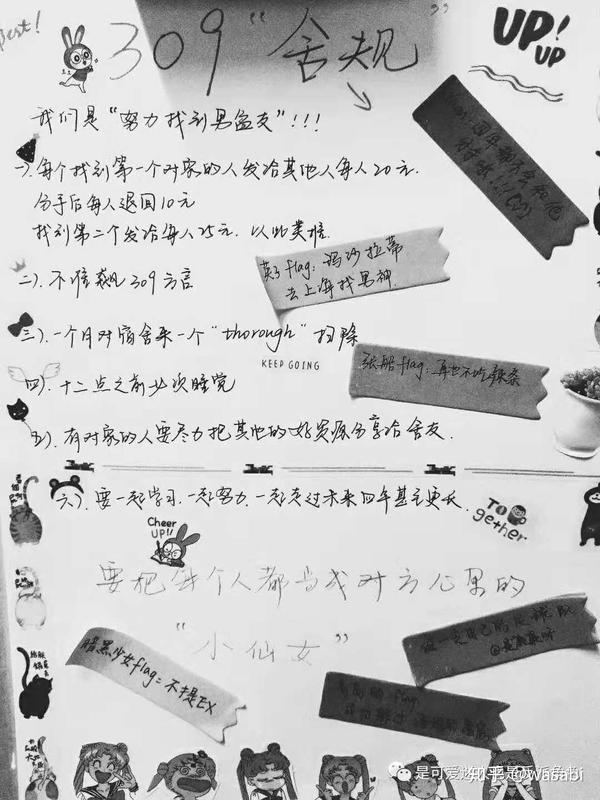 Best!
309 “舍规”
UP!
UP
我们是“努力找到男盆友”!!!
一). 每个找到第一个对象的人发给其他人每人20元.
分手后每人退回10元
找到第二个发给每人25元. 以此类推.
英子flag: 玛沙拉蒂
去上海找男神.
二). 不准飙309方言
三). 一个月对宿舍来一个“thorough”扫除
KEEP GOING
张船flag: 再也不吃辣条
四). 十二点之前必须睡觉
五). 有对家的人要尽力把其他的好资源分享给舍友.
六). 要一起学习, 一起努力, 一起走过未来四年甚至更长.
TO
gether
Cheer
UP!!
要把每个人都当成对方公果的
“小仙女”
暗黑少女flag=不提EX
知乎 @Wasabi